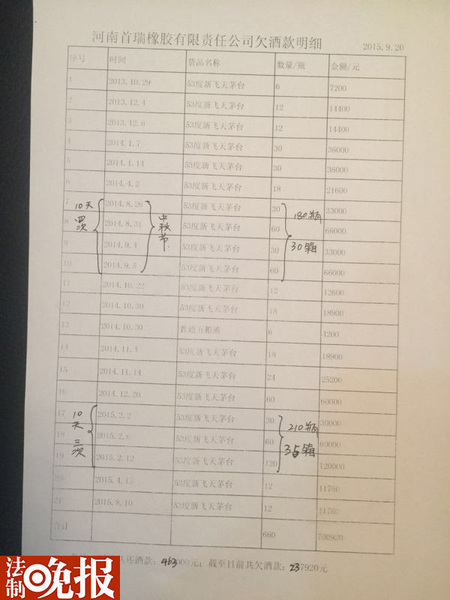 河南首瑞橡胶有限责任公司欠酒款明细 2015.9.20
序号 时间 货品名称 数量/瓶 金额/元
2013.10.29 53度新飞天茅台 6 7200
2013.12.4 53度新飞天茅台 12 14400
2013.12.6 53度新飞天茅台 12 14400
2014.1.7 53度新飞天茅台 30 36000
2014.1.14 53度新飞天茅台 30 36000
2014.4.2 53度新飞天茅台 18 21600
7 2014.8.28 53度新飞天茅台 30 33000
8 2014.8.31 53度新飞天茅台 60 66000
9 2014.9.1 53度新飞天茅台 30 33000
10 53度新飞天茅台 60 66000
10天
四次
中秋节
180瓶
30箱
2014.10.22 53度新飞天茅台 12 12600
2014.10.30 53度新飞天茅台 18 18900
13 2014.10.30 五粮液 6 4200
14 53度新飞天茅台 18 18900
15 2014.11.14 53度新飞天茅台 24 25200
16 2014.12.20 53度新飞天茅台 60 60000
17 2015.2.2 53度新飞天茅台 30 30000
18 53度新飞天茅台 60 60000
19 2015.2.12 53度新飞天茅台 120 120000
10天
三次
210瓶
35箱
53度新飞天茅台 12
21 2015.9.10 53度新飞天茅台 12
合计 660
酒款：463000元；截至目前共欠酒款：237920元
法制晚报